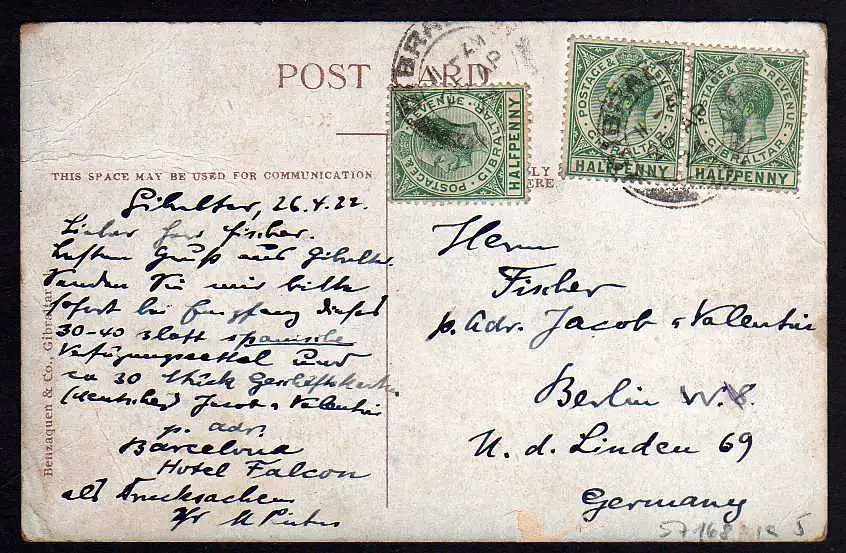 POST CARD
THIS SPACE MAY BE USED FOR COMMUNICATION
Benzaquen & Co., Gibraltar
POSTAGE & REVENUE
GIBRALTAR
HALFPENNY
POSTAGE & REVENUE
GIBRALTAR
HALFPENNY
POSTAGE & REVENUE
GIBRALTAR
HALFPENNY
Gibraltar, 26.4.22.
Lieber Herr Fischer.
besten Gruß aus Gibraltar.
Senden Sie mir bitte
sofort bei Empfang dieses
30-40 Blatt spanische
Verfügungszettel und
ca 30 Stück Geschäftskarten
(deutsche) Jacob & Valentin
p. adr.
Barcelona
Hotel Falcon
als Drucksachen
Herrn
Fischer
p. Adr. Jacob & Valentin
Berlin W. 8.
U. d. Linden 69
Germany